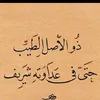 ذُو الأَصْلِ الطَّيِّبِ
حَتَّى فِي عَدَاوَتِهِ شَرِيف